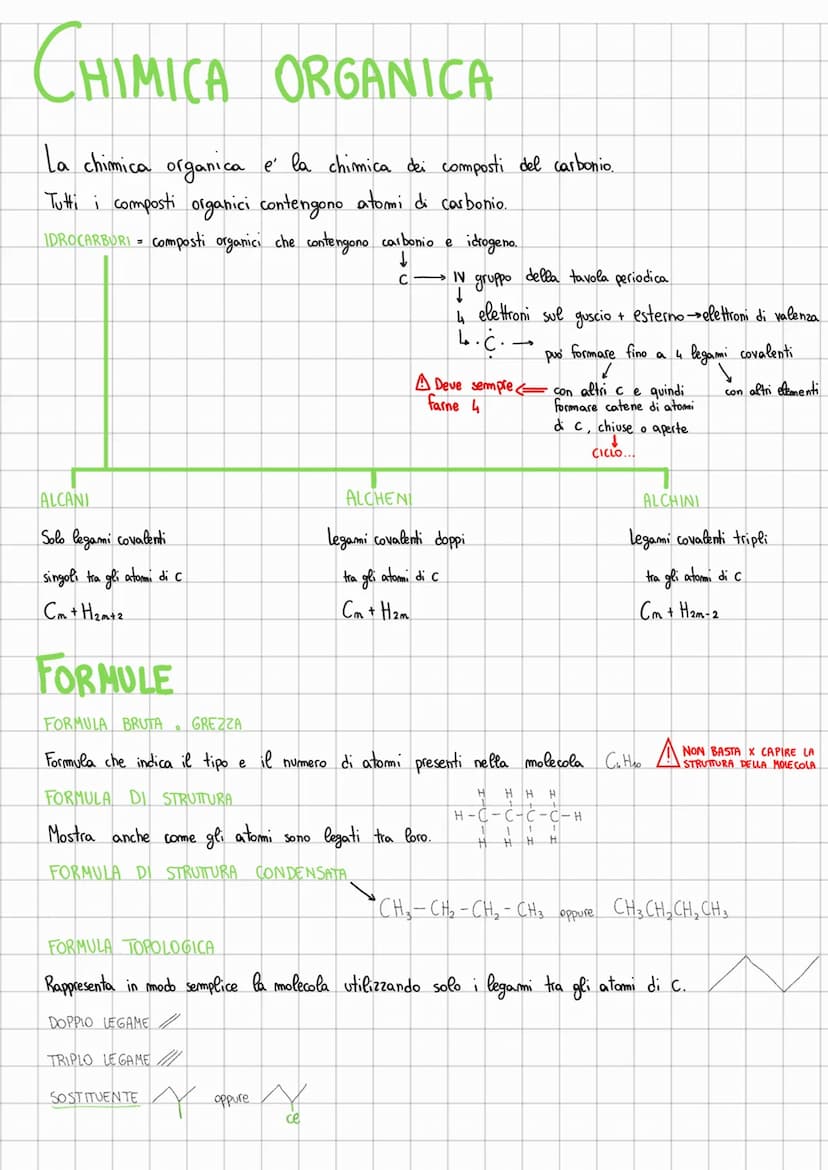 CHIMICA ORGANICA
La chimica organica e' la chimica dei composti del carbonio.
Tutti i composti organici contengono atomi di carbonio.
IDROCARBURI = composti organici che contengono carbonio e idrogeno.
↓
C → IV gruppo della tavola periodica
↓
4 elettroni sul guscio + esterno → elettroni di valenza
↳ ·C· → può formare fino a 4 legami covalenti
⚠ Deve sempre ⇐ con altri C e quindi con altri elementi
farne 4 formare catene di atomi
di C, chiuse o aperte
↓
CICLO...
ALCANI ALCHENI ALCHINI
Solo legami covalenti legami covalenti doppi legami covalenti tripli
singoli tra gli atomi di C tra gli atomi di C tra gli atomi di C
Cn + H2n+2 Cn + H2n Cn + H2n-2
FORMULE
FORMULA BRUTA o GREZZA
Formula che indica il tipo e il numero di atomi presenti nella molecola C4H10 ⚠ NON BASTA X CAPIRE LA
STRUTTURA DELLA MOLECOLA
FORMULA DI STRUTTURA
H H H H
H-C-C-C-C-H
H H H H
Mostra anche come gli atomi sono legati tra loro.
FORMULA DI STRUTTURA CONDENSATA
CH3-CH2-CH2-CH3 oppure CH3CH2CH2CH3
FORMULA TOPOLOGICA
Rappresenta in modo semplice la molecola utilizzando solo i legami tra gli atomi di C.
DOPPIO LEGAME //
TRIPLO LEGAME ///
SOSTITUENTE oppure
Cl